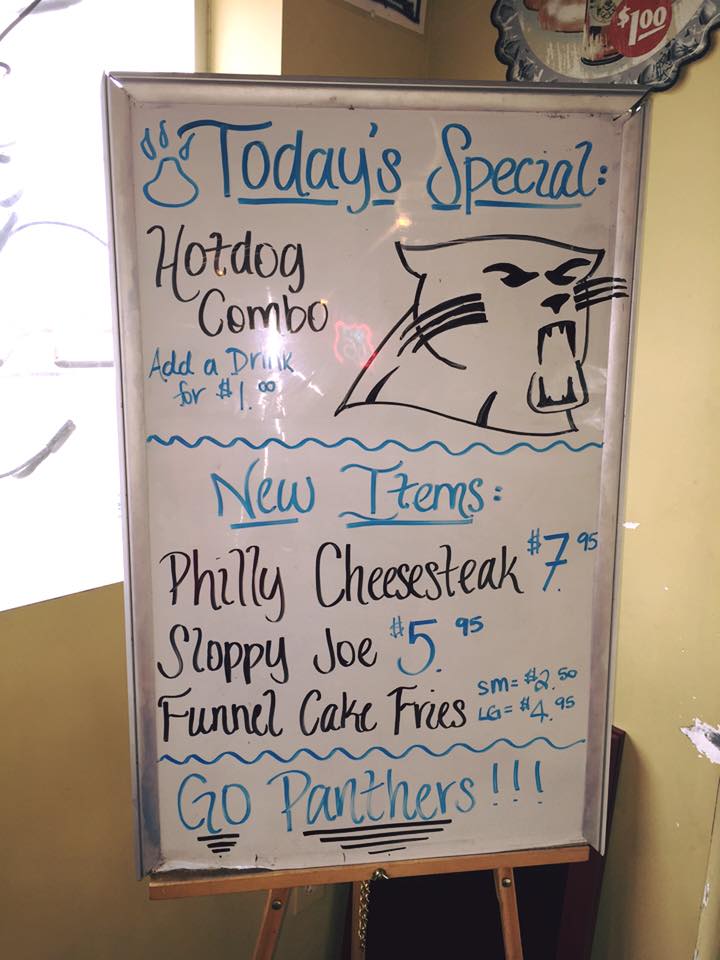 $1.00
Today's Special:
Hotdog
Combo
Add a Drink
for $1.00
New Items:
Philly Cheesesteak $7.95
Sloppy Joe $5.95
Funnel Cake Fries SM= $2.50
LG= $4.95
Go Panthers!!!